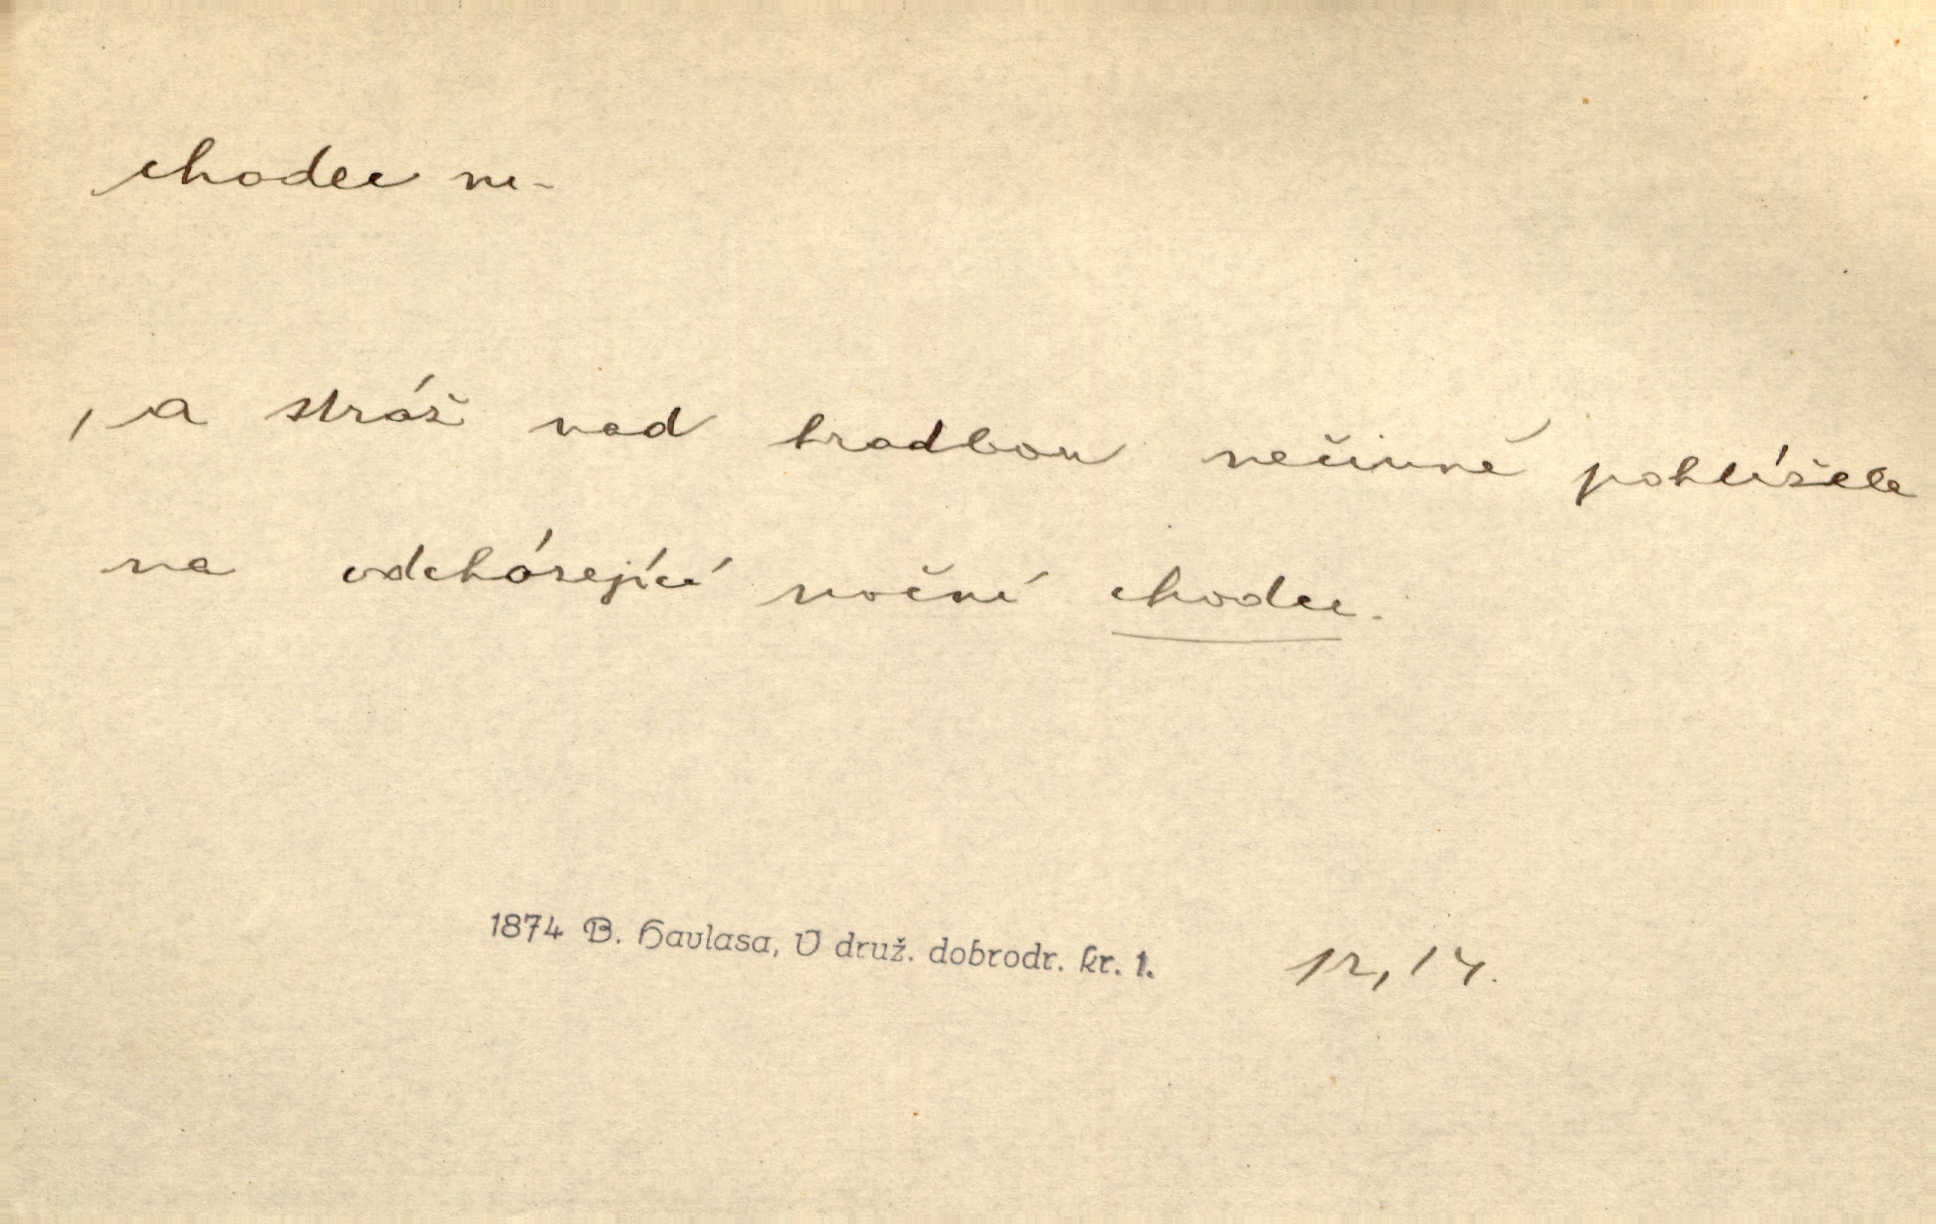 chodec m-
, a stráž nad hradbou nečinně pohlížela
na odcházející noční chodce.
1874 B. Havlasa, V druž. dobrodr. kr. 1. 12, 14.